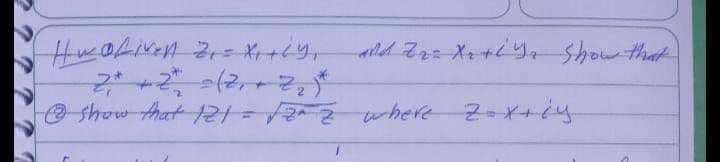 H.w ① Given z₁ = x₁ + iy₁ and z₂ = x₂ + iy₂ show that
z₁* + z₂* = (z₁ + z₂)*
② show that |z| = √z* z where z = x + iy